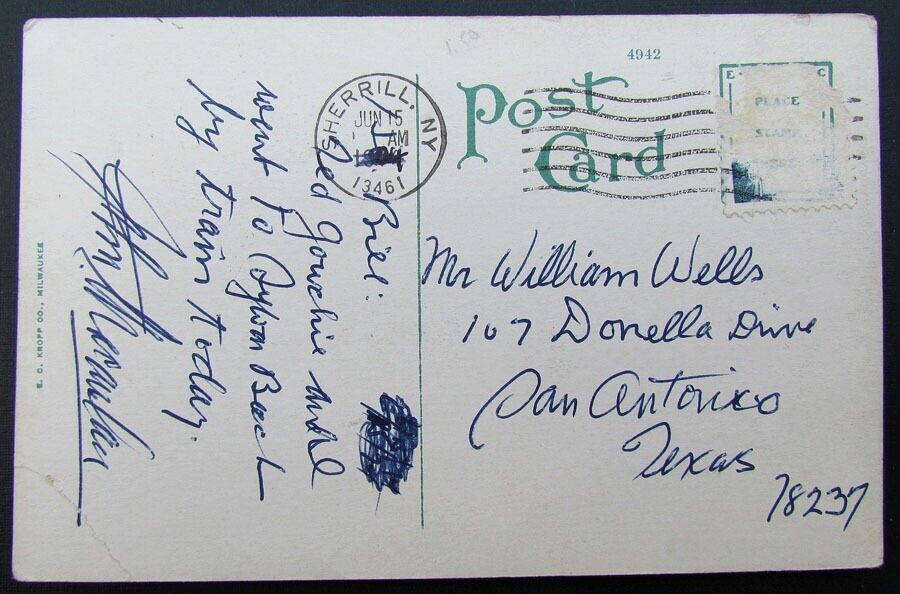 4942
Post
Card
E C
PLACE
STAMP
HERE
SHERRILL, NY
JUN 15
AM
13461
Bill:
Ted Gouchie and
went to Sylvan Beach
by train today.
Mr William Wells
107 Donella Drive
San Antonio
Texas
78237
E. C. KROPP CO., MILWAUKEE